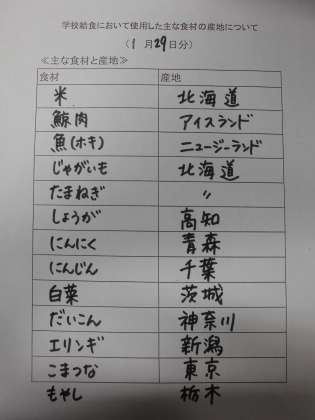 学校給食において使用した主な食材の産地について
(1月29日分)
≪主な食材と産地≫
食材 産地
米 北海道
鯨肉 アイスランド
魚(ホキ) ニュージーランド
じゃがいも 北海道
たまねぎ 〃
しょうが 高知
にんにく 青森
にんじん 千葉
白菜 茨城
だいこん 神奈川
エリンギ 新潟
こまつな 東京
もやし 栃木